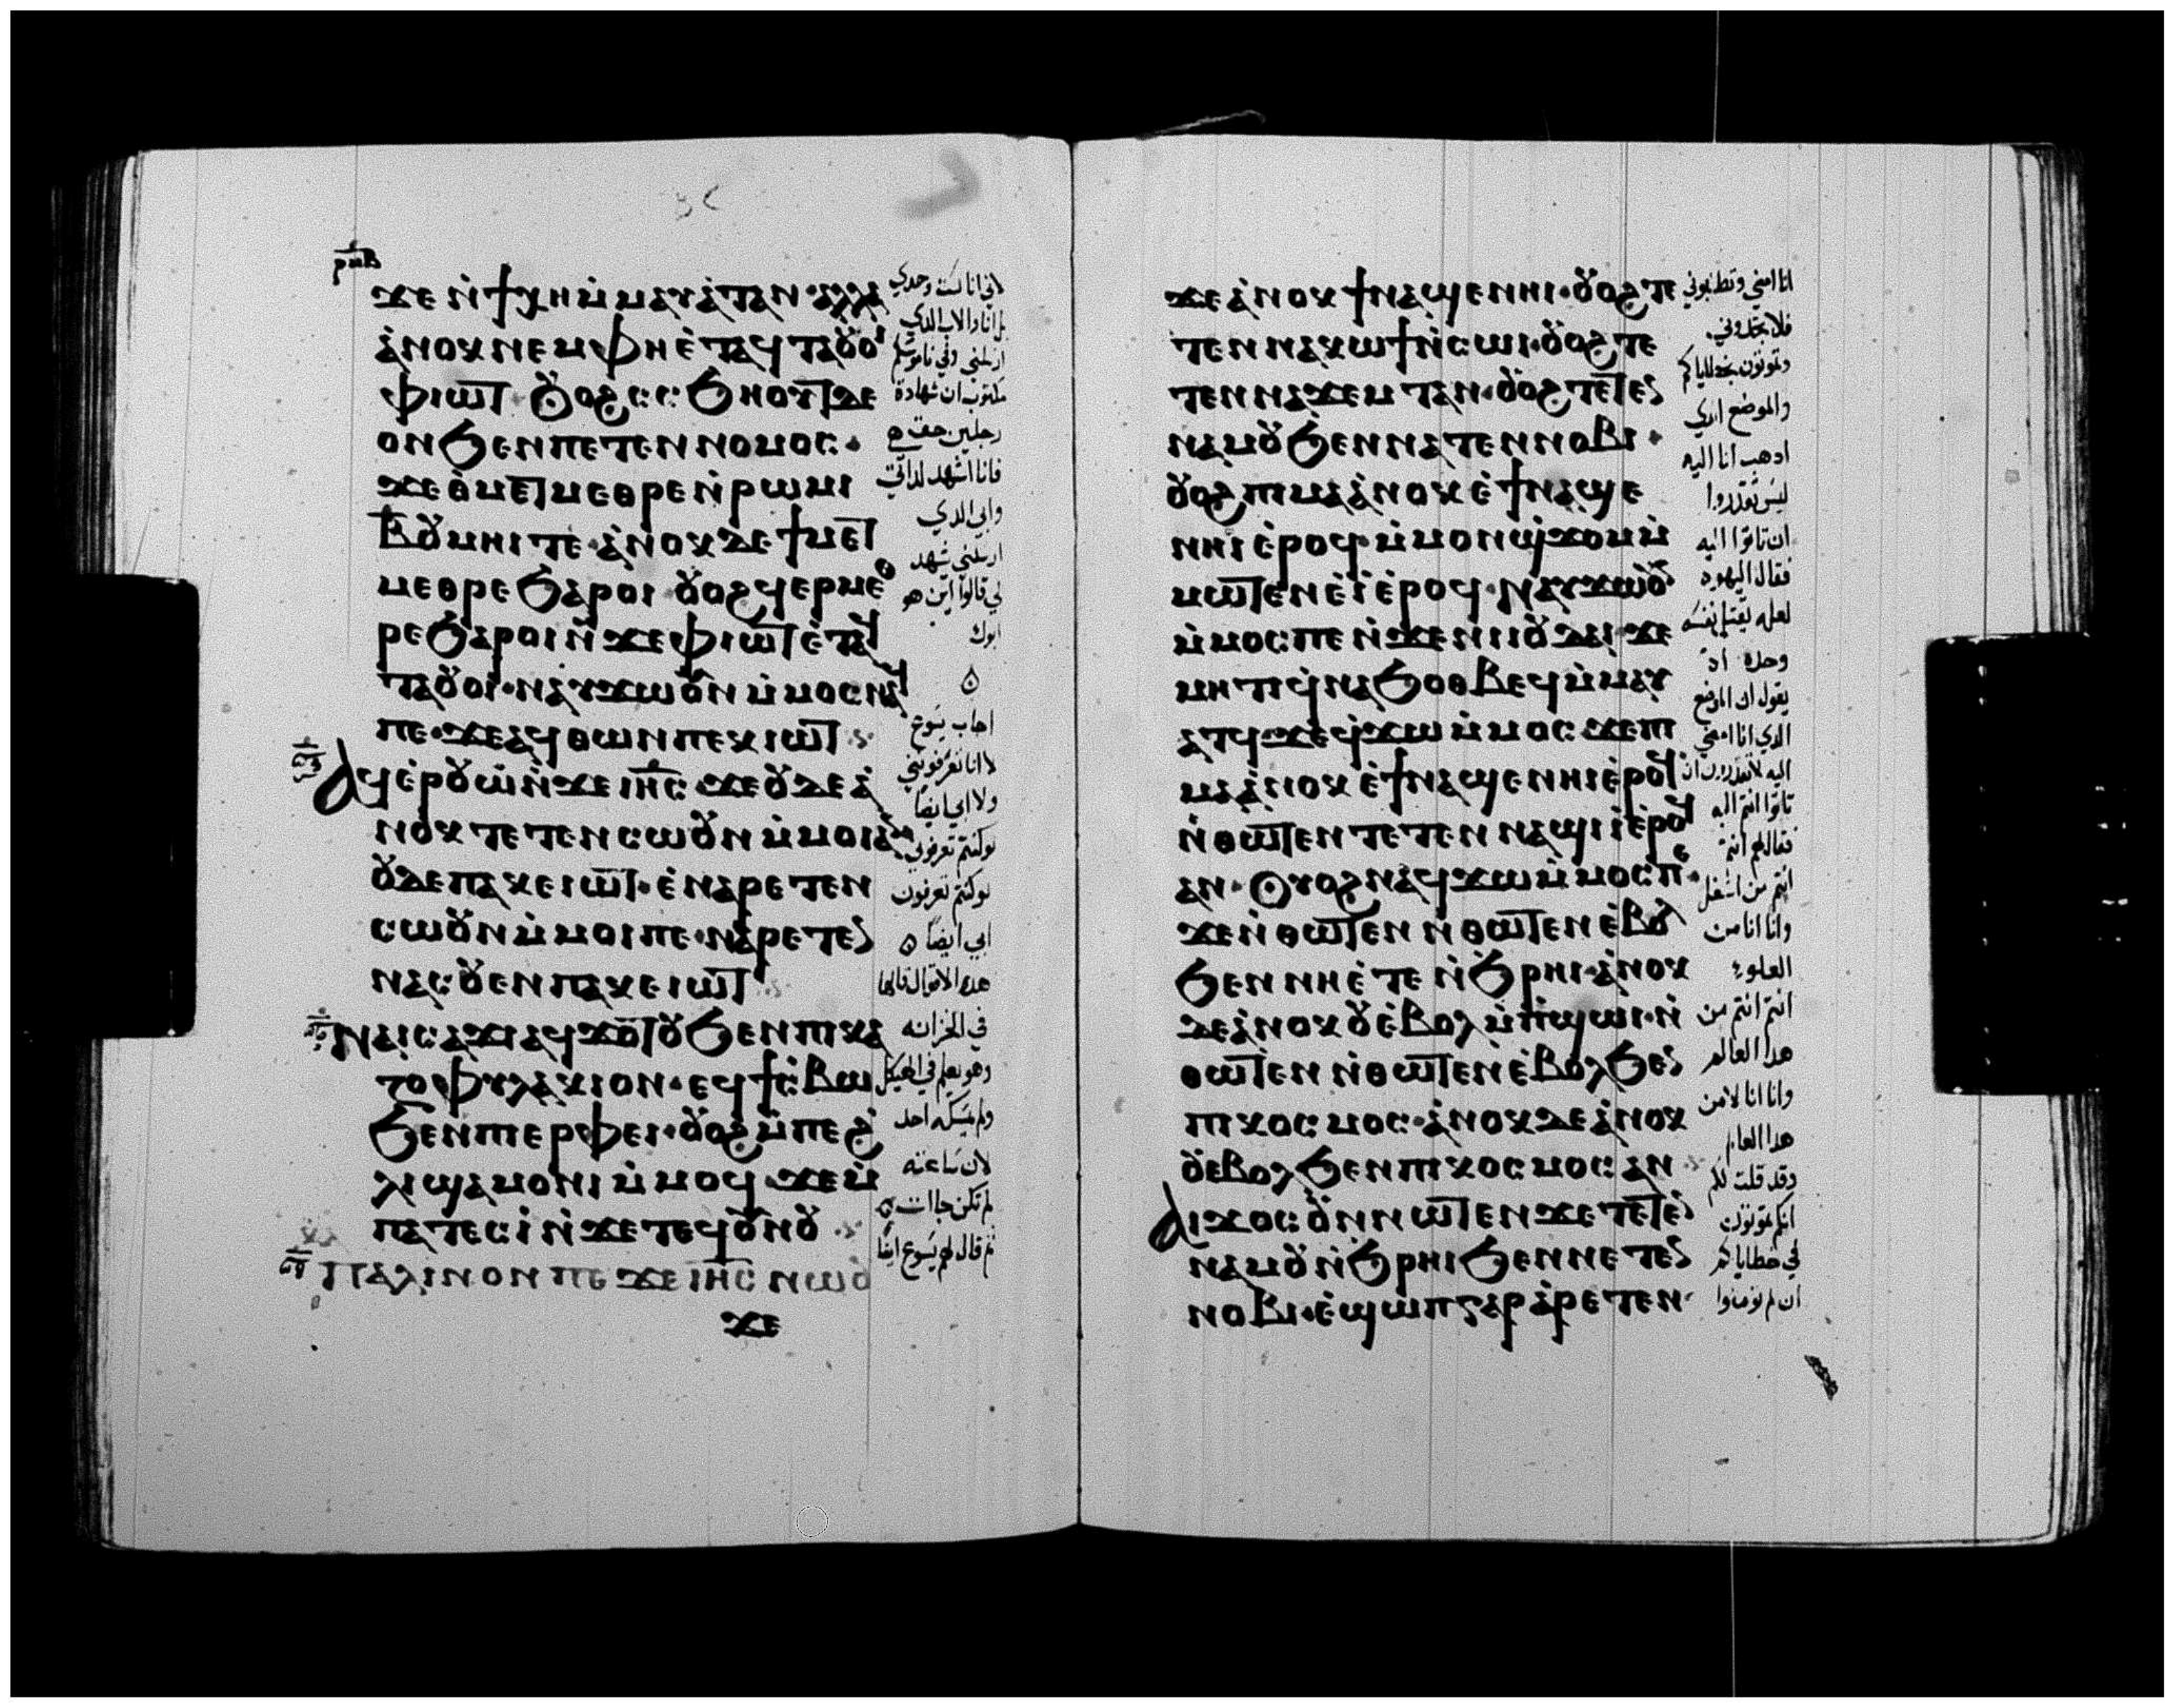 ϫⲉ ⲛ̀ϯⲭⲏ ⲙ̀ⲙⲁⲩⲁ̀ⲧ ⲁⲛ · ⲁⲗⲗⲁ
ⲁ̀ⲛⲟⲕ ⲛⲉⲙ ⲫⲏ ⲉ̀ⲧⲁϥⲧⲁⲟⲩⲟⲓ
ⲫⲓⲱⲧ ⲟⲩⲟϩ ⲥⲥϧⲏⲟⲩⲧ ⲇⲉ
ⲟⲛ ϧⲉⲛ ⲡⲉⲧⲉⲛⲛⲟⲙⲟⲥ ·
ϫⲉ ⲑⲙⲉⲧⲙⲉⲑⲣⲉ ⲛ̀ⲣⲱⲙⲓ
ⲃ̅ ⲟⲩⲙⲏⲓ ⲧⲉ · ⲁ̀ⲛⲟⲕ ⲇⲉ ϯⲙⲉⲧ
ⲙⲉⲑⲣⲉ ϧⲁⲣⲟⲓ ⲟⲩⲟϩ ϥⲉⲣⲙⲉⲑ
ⲣⲉ ϧⲁⲣⲟⲓ ⲛ̀ϫⲉ ⲫⲓⲱⲧ ⲉ̀ⲧⲁϥ
ⲧⲁⲟⲩⲟⲓ · ⲛⲁⲩϫⲱ ⲟⲩⲛ ⲙ̀ⲙⲟⲥ ⲛⲁϥ
ⲡⲉ · ϫⲉ ⲁϥⲑⲱⲛ ⲡⲉⲕⲓⲱⲧ
ⲁϥⲉ̀ⲣⲟⲩⲱ̀ ⲛ̀ϫⲉ ⲓⲏⲥ ϫⲉ ⲟⲩⲇⲉ ⲁ̀
ⲛⲟⲕ ⲧⲉⲧⲉⲛⲥⲱⲟⲩⲛ ⲙ̀ⲙⲟⲓ ⲁⲛ
ⲟⲩⲇⲉ ⲡⲁⲕⲉⲓⲱⲧ · ⲉ̀ⲛⲁⲣⲉⲧⲉⲛ
ⲥⲱⲟⲩⲛ ⲙ̀ⲙⲟⲓ ⲡⲉ · ⲛⲁⲣⲉⲧⲉⲛ
ⲛⲁⲥⲟⲩⲉⲛ ⲡⲁⲕⲉⲓⲱⲧ
ⲛⲁⲓⲥⲁϫⲓ ⲁϥϫⲟⲧⲟⲩ ϧⲉⲛ ⲡⲓⲕⲁ
ⲍⲟⲫⲩⲗⲁⲕⲓⲟⲛ · ⲉϥϯⲥ̀ⲃⲱ
ϧⲉⲛ ⲡⲓⲉⲣⲫⲉⲓ · ⲟⲩⲟϩ ⲙ̀ⲡⲉϩ
ⲗⲓ ϣⲁⲙⲟⲛⲓ ⲙ̀ⲙⲟϥ ϫⲉ ⲙ̀
ⲡⲁⲧⲉⲥⲓ̀ ⲛ̀ϫⲉ ⲧⲉϥⲟⲩⲛⲟⲩ
ⲡⲁⲗⲓⲛ ⲟⲛ ⲡⲉϫⲉ ⲓⲏⲥ ⲛⲱⲟⲩ
ϫⲉ
لاني انا لست وحدي
بل انا والاب الذي
ارسلني وفي ناموسكم
مكتوب ان شهادة
رجلين حق هي
فانا اشهد لذاتي
وابي الذي
ارسلني شهد
لي قالوا اين هو
ابوك
اجاب يسوع
لا انا تعرفوني
ولا ابي ايضا
لو كنتم تعرفوني
لو كنتم تعرفون
ابي ايضا
هذه الاقوال قالها
في الخزانه
وهو يعلم في الهيكل
ولم يمسكه احد
لان ساعته
لم تكن جاات
ثم قال لهم يسوع ايضا
ϫⲉ ⲁ̀ⲛⲟⲕ ϯⲛⲁϣⲉⲛⲏⲓ · ⲟⲩⲟϩ ⲧⲉ
ⲧⲉⲛⲛⲁⲕⲱϯ ⲛ̀ⲥⲱⲓ · ⲟⲩⲟϩ ⲧⲉ
ⲧⲉⲛⲛⲁϫⲉⲙⲧ ⲁⲛ · ⲟⲩⲟϩ ⲧⲉⲧⲉⲛ
ⲛⲁⲙⲟⲩ ϧⲉⲛ ⲛⲁⲧⲉⲛⲛⲟⲃⲓ ·
ⲟⲩⲟϩ ⲡⲓⲙⲁ ⲁ̀ⲛⲟⲕ ⲉ̀ϯⲛⲁϣⲉ
ⲛⲏⲓ ⲉ̀ⲣⲟϥ ⲙ̀ⲙⲟⲛ ϣ̀ϫⲟⲙ ⲙ̀
ⲙⲱⲧⲉⲛ ⲉ̀ⲓ̀ ⲉ̀ⲣⲟϥ · ⲛⲁⲩϫⲱⲟⲩ
ⲙ̀ⲙⲟⲥ ⲡⲉ ⲛ̀ϫⲉ ⲛⲓⲓⲟⲩⲇⲁⲓ · ϫⲉ
ⲙⲏⲧⲓ ϥ̀ⲛⲁϧⲟⲑⲃⲉϥ ⲙ̀ⲙⲁⲩ
ⲁⲧϥ ϫⲉ ϥ̀ϫⲱ ⲙ̀ⲙⲟⲥ ϫⲉ ⲡⲓ
ⲙⲁ ⲁ̀ⲛⲟⲕ ⲉ̀ϯⲛⲁϣⲉⲛⲏⲓ ⲉ̀ⲣⲟϥ
ⲛ̀ⲑⲱⲧⲉⲛ ⲧⲉⲧⲉⲛⲛⲁϣⲓ̀ ⲉ̀ⲣⲟϥ
ⲁⲛ · ⲟⲩⲟϩ ⲛⲁϥϫⲱ ⲙ̀ⲙⲟⲥ ⲡⲉ ·
ϫⲉ ⲛ̀ⲑⲱⲧⲉⲛ ⲛ̀ⲑⲱⲧⲉⲛ ⲉ̀ⲃⲟⲗ
ϧⲉⲛ ⲛⲏ ⲉ̀ⲧⲉ ⲛ̀ϧⲣⲏⲓ · ⲁ̀ⲛⲟⲕ
ⲇⲉ ⲁ̀ⲛⲟⲕ ⲟⲩⲉ̀ⲃⲟⲗ ⲙ̀ⲡ̀ϣⲱⲓ · ⲛ̀
ⲑⲱⲧⲉⲛ ⲛ̀ⲑⲱⲧⲉⲛ ⲉ̀ⲃⲟⲗ ϧⲉⲛ
ⲡⲓⲕⲟⲥⲙⲟⲥ · ⲁ̀ⲛⲟⲕ ⲇⲉ ⲁ̀ⲛⲟⲕ
ⲟⲩⲉⲃⲟⲗ ϧⲉⲛ ⲡⲓⲕⲟⲥⲙⲟⲥ ⲁⲛ
ⲁⲓϫⲟⲥ ⲟⲩⲛ ⲛⲱⲧⲉⲛ ϫⲉ ⲧⲉⲧⲉⲛ
ⲛⲁⲙⲟⲩ ⲛ̀ϧⲣⲏⲓ ϧⲉⲛ ⲛⲉⲧⲉⲛ
ⲛⲟⲃⲓ · ⲉ̀ϣⲱⲡ ⲅⲁⲣ ⲁ̀ⲣⲉⲧⲉⲛ
انا امضي وتطلبوني
فلا تجدوني
وتموتون بخطاياكم
والموضع الذي
اذهب انا اليه
ليس تقدروا
ان تاتوا اليه
فقال اليهود
لعله يقتل نفسه
وحده اذ
يقول ان الموضع
الذي انا امضي
اليه لا تقدرون ان
تاتوا انتم اليه
فقال لهم انتم
انتم من اسفل
وانا انا من
العلو
انتم انتم من
هذا العالم
وانا انا لا من
هذا العالم
وقد قلت لكم
انكم تموتون
في خطاياكم
ان لم تومنوا